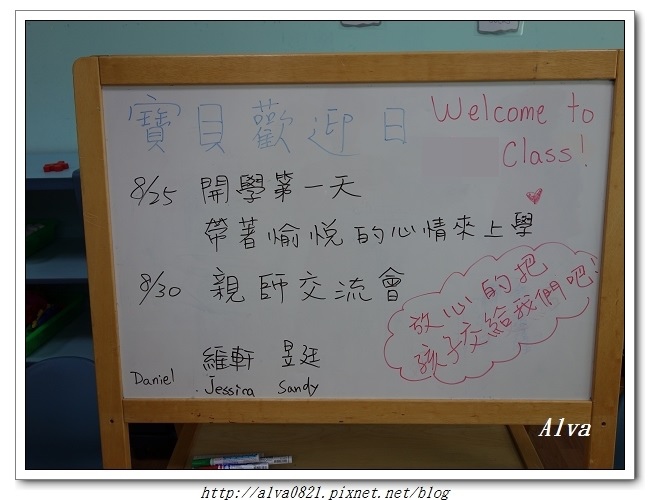 寶貝歡迎日
Welcome to
Class!
8/25 開學第一天
帶著愉悅的心情來上學
8/30 親師交流會
放心的把
孩子交給我們吧!
維軒 昱廷
Daniel Jessica Sandy
Alva
http://alva0821.pixnet.net/blog